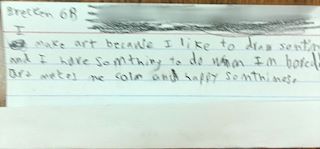 Brecken 6B
I
make art because I like to draw somtimes
and I have somthing to do when Im bored
Art makes me calm and happy somthimese